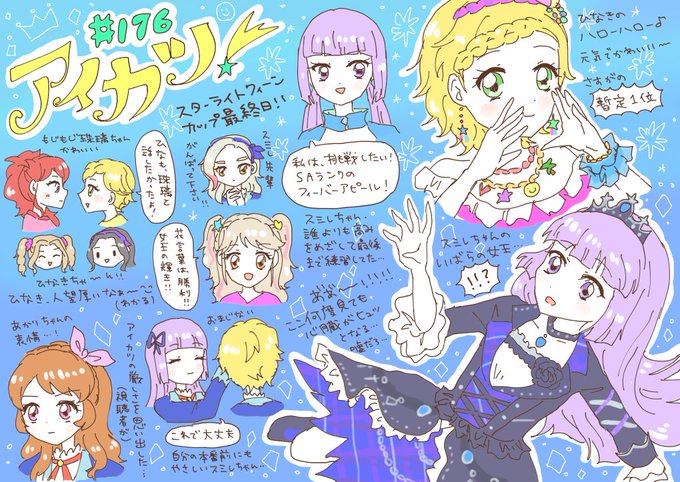 #176
アイカツ!
スターライトクィーン
カップ最終日!!
もじもじ珠璃ちゃん
かわいい
ひなも珠璃と
話したかったよ!
スミレ先輩
がんばって下さい!!
私は、挑戦したい!
SAランクの
フィーバーアピール!
ひなきの
ハローハロー♪
元気でかわいい〜
さすがの
暫定1位
ひなきちゃ〜ん!!
ひなき、人望厚いなぁ〜
(わかる)
花言葉は勝利!!
女王の輝き!!
スミレちゃん…
誰よりも高み
をめざして最後
まで練習してた…
あぁ〜!!!!!!
ここ何度見ても
心臓がヒュッ
となる…
嘘だろ…
スミレちゃんの
いばらの女王…
!!?
あかりちゃんの
表情…!
アイカツの厳しさを思い出した…
(視聴者が)
おまじない
これで大丈夫
自分の本番前にも
やさしいスミレちゃん…